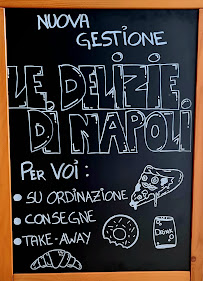 NUOVA
GESTIONE
LE DELIZIE
DI NAPOLI
PER VOI:
• SU ORDINAZIONE
• CONSEGNE
• TAKE-AWAY
DRINK